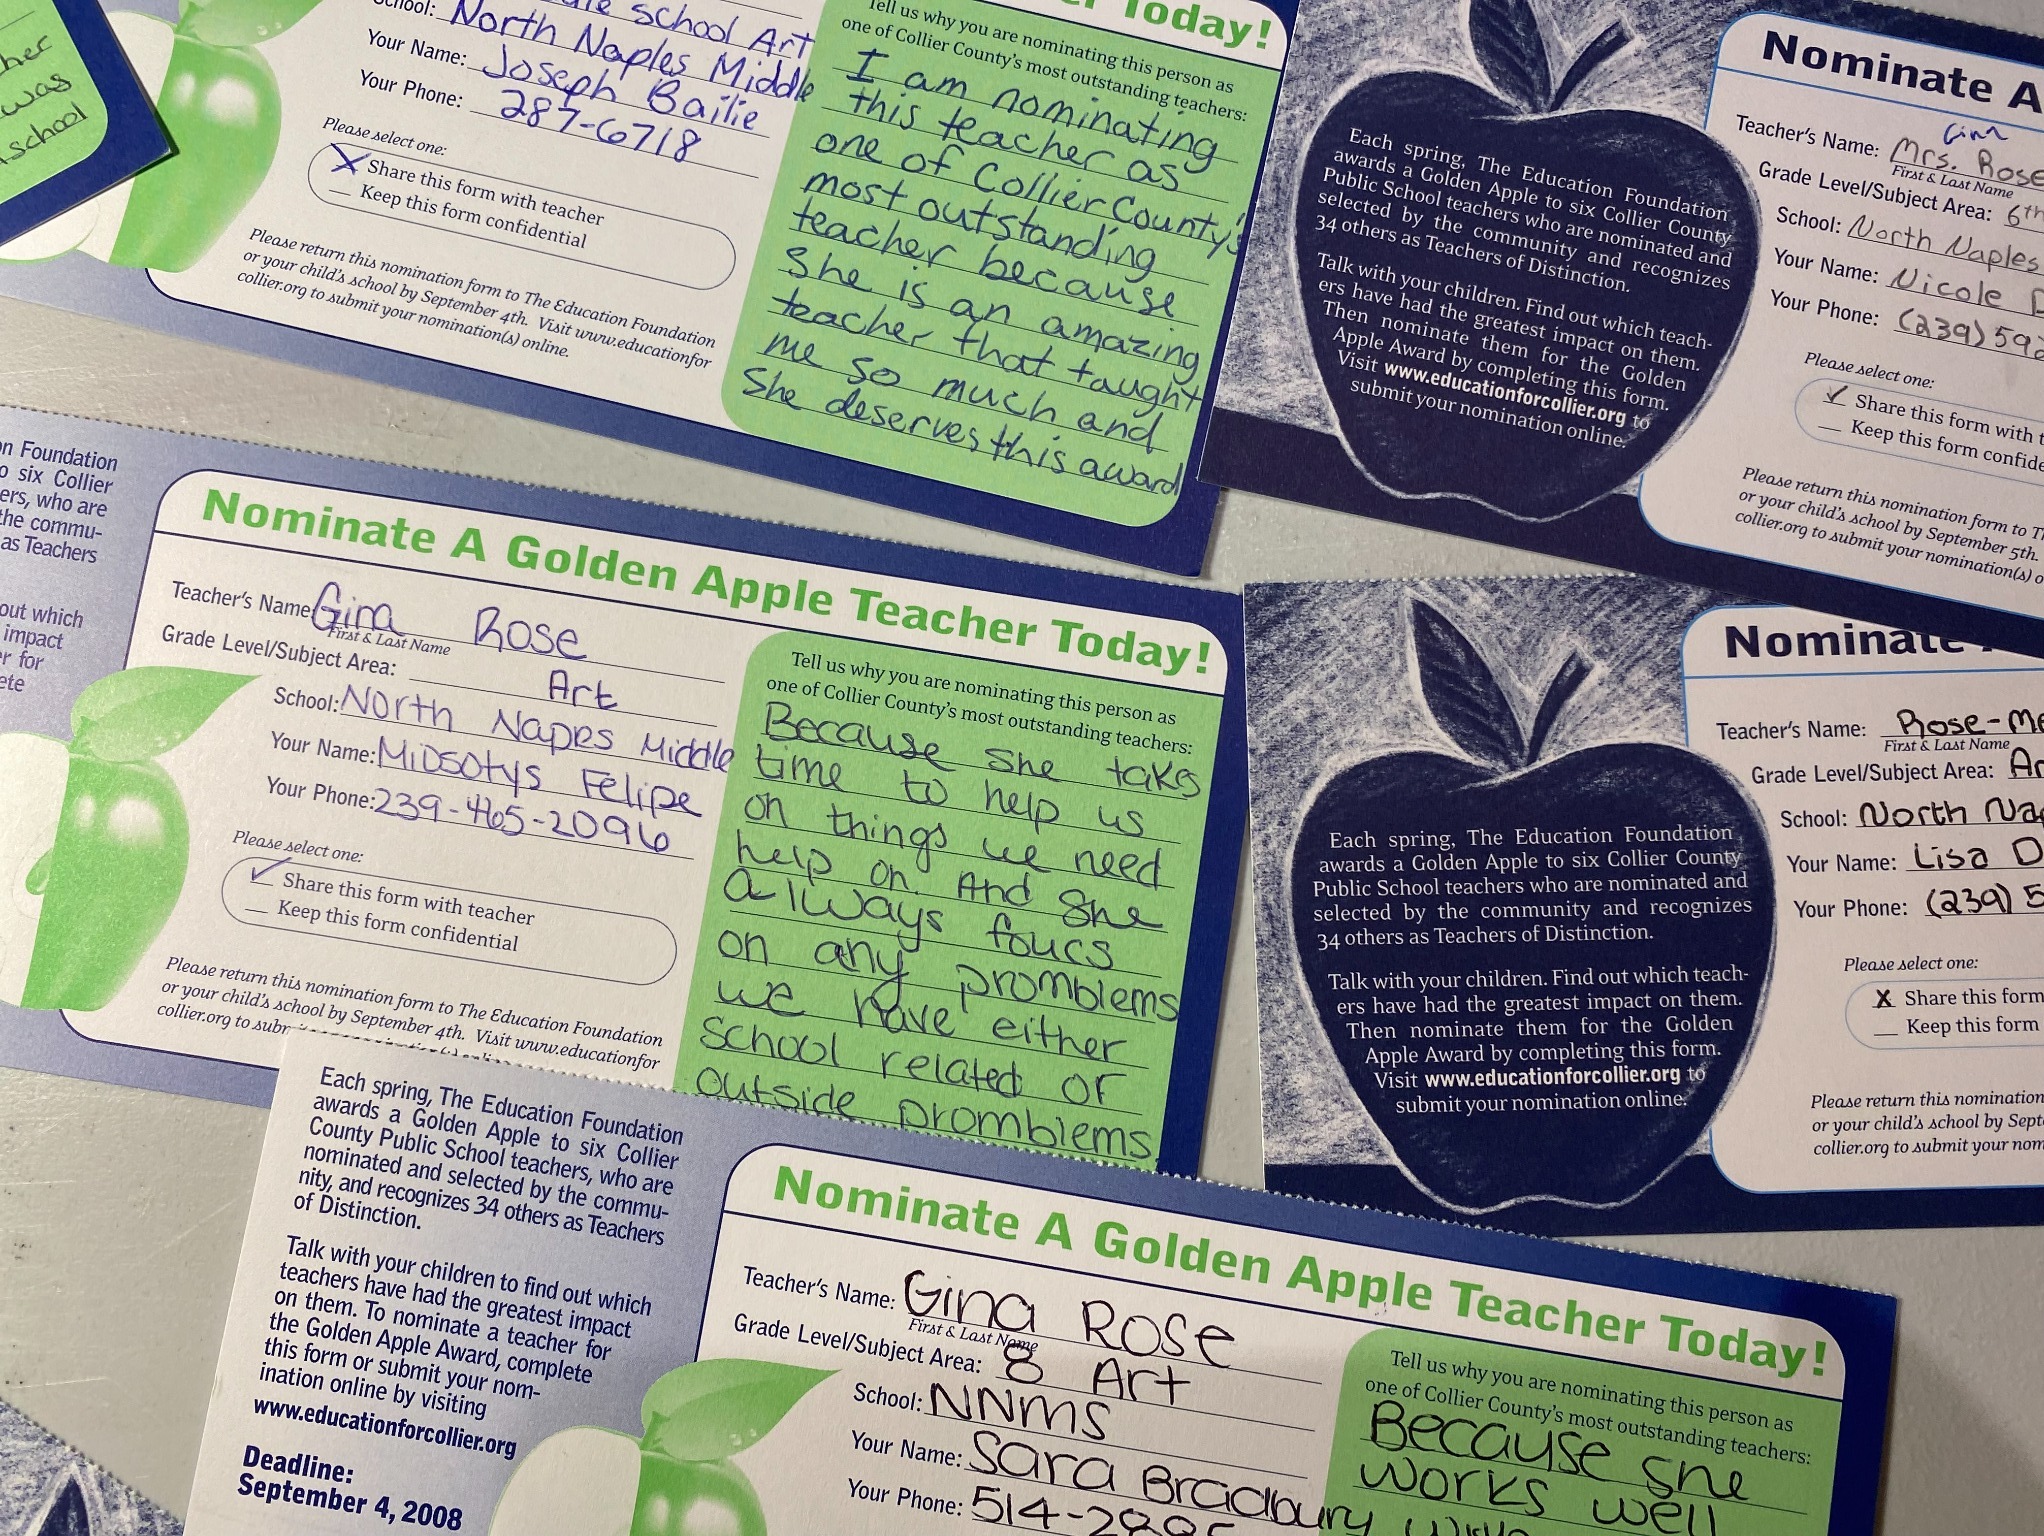 her
was
school
School Art
School: North Naples Middle
Your Name: Joseph Bailie
Your Phone: 287-6718
Please select one:
X Share this form with teacher
Keep this form confidential
Please return this nomination form to The Education Foundation
or your child's school by September 4th. Visit www.educationfor
collier.org to submit your nomination(s) online.
Today!
Tell us why you are nominating this person as
one of Collier County's most outstanding teachers:
I am nominating
this teacher as
one of Collier County's
most outstanding
teacher because
she is an amazing
teacher that taught
me so much and
She deserves this award
Each spring, The Education Foundation
awards a Golden Apple to six Collier County
Public School teachers who are nominated and
selected by the community and recognizes
34 others as Teachers of Distinction.
Talk with your children. Find out which teach-
ers have had the greatest impact on them.
Then nominate them for the Golden
Apple Award by completing this form.
Visit www.educationforcollier.org to
submit your nomination online.
Nominate A
Gina
Teacher's Name: Mrs. Rose
First & Last Name
Grade Level/Subject Area: 6th
School: North Naples
Your Name: Nicole
Your Phone: (239) 592
Please select one:
Share this form with t
Keep this form confide
Please return this nomination form to Th
or your child's school by September 5th.
collier.org to submit your nomination(s) o
on Foundation
o six Collier
ers, who are
the commu-
as Teachers
out which
impact
er for
ete
Nominate A Golden Apple Teacher Today!
Teacher's Name: Gina Rose
First & Last Name
Grade Level/Subject Area: Art
School: North Napes Middle
Your Name: Midsotys Felipe
Your Phone: 239-465-2096
Please select one:
Share this form with teacher
Keep this form confidential
Please return this nomination form to The Education Foundation
or your child's school by September 4th. Visit www.educationfor
collier.org to subm
Tell us why you are nominating this person as
one of Collier County's most outstanding teachers:
Because she takes
time to help us
on things we need
help on. And She
always foucs
on any promblems
we have either
school related or
outside promblems.
Each spring, The Education Foundation
awards a Golden Apple to six Collier County
Public School teachers who are nominated and
selected by the community and recognizes
34 others as Teachers of Distinction.
Talk with your children. Find out which teach-
ers have had the greatest impact on them.
Then nominate them for the Golden
Apple Award by completing this form.
Visit www.educationforcollier.org to
submit your nomination online.
Nominate
Teacher's Name: Rose-Mo
First & Last Name
Grade Level/Subject Area: Ar
School: North Nap
Your Name: Lisa D
Your Phone: (239) 5
Please select one:
X Share this form
Keep this form
Please return this nomination
or your child's school by Sept
collier.org to submit your nom
Each spring, The Education Foundation
awards a Golden Apple to six Collier
County Public School teachers, who are
nominated and selected by the commu-
nity, and recognizes 34 others as Teachers
of Distinction.
Talk with your children to find out which
teachers have had the greatest impact
on them. To nominate a teacher for
the Golden Apple Award, complete
this form or submit your nom-
ination online by visiting
www.educationforcollier.org
Deadline:
September 4, 2008
Nominate A Golden Apple Teacher Today!
Teacher's Name: Gina Rose
First & Last Name
Grade Level/Subject Area: 8 Art
School: NNMS
Your Name: Sara Bradbury
Your Phone: 514-
Tell us why you are nominating this person as
one of Collier County's most outstanding teachers:
Because she
works well